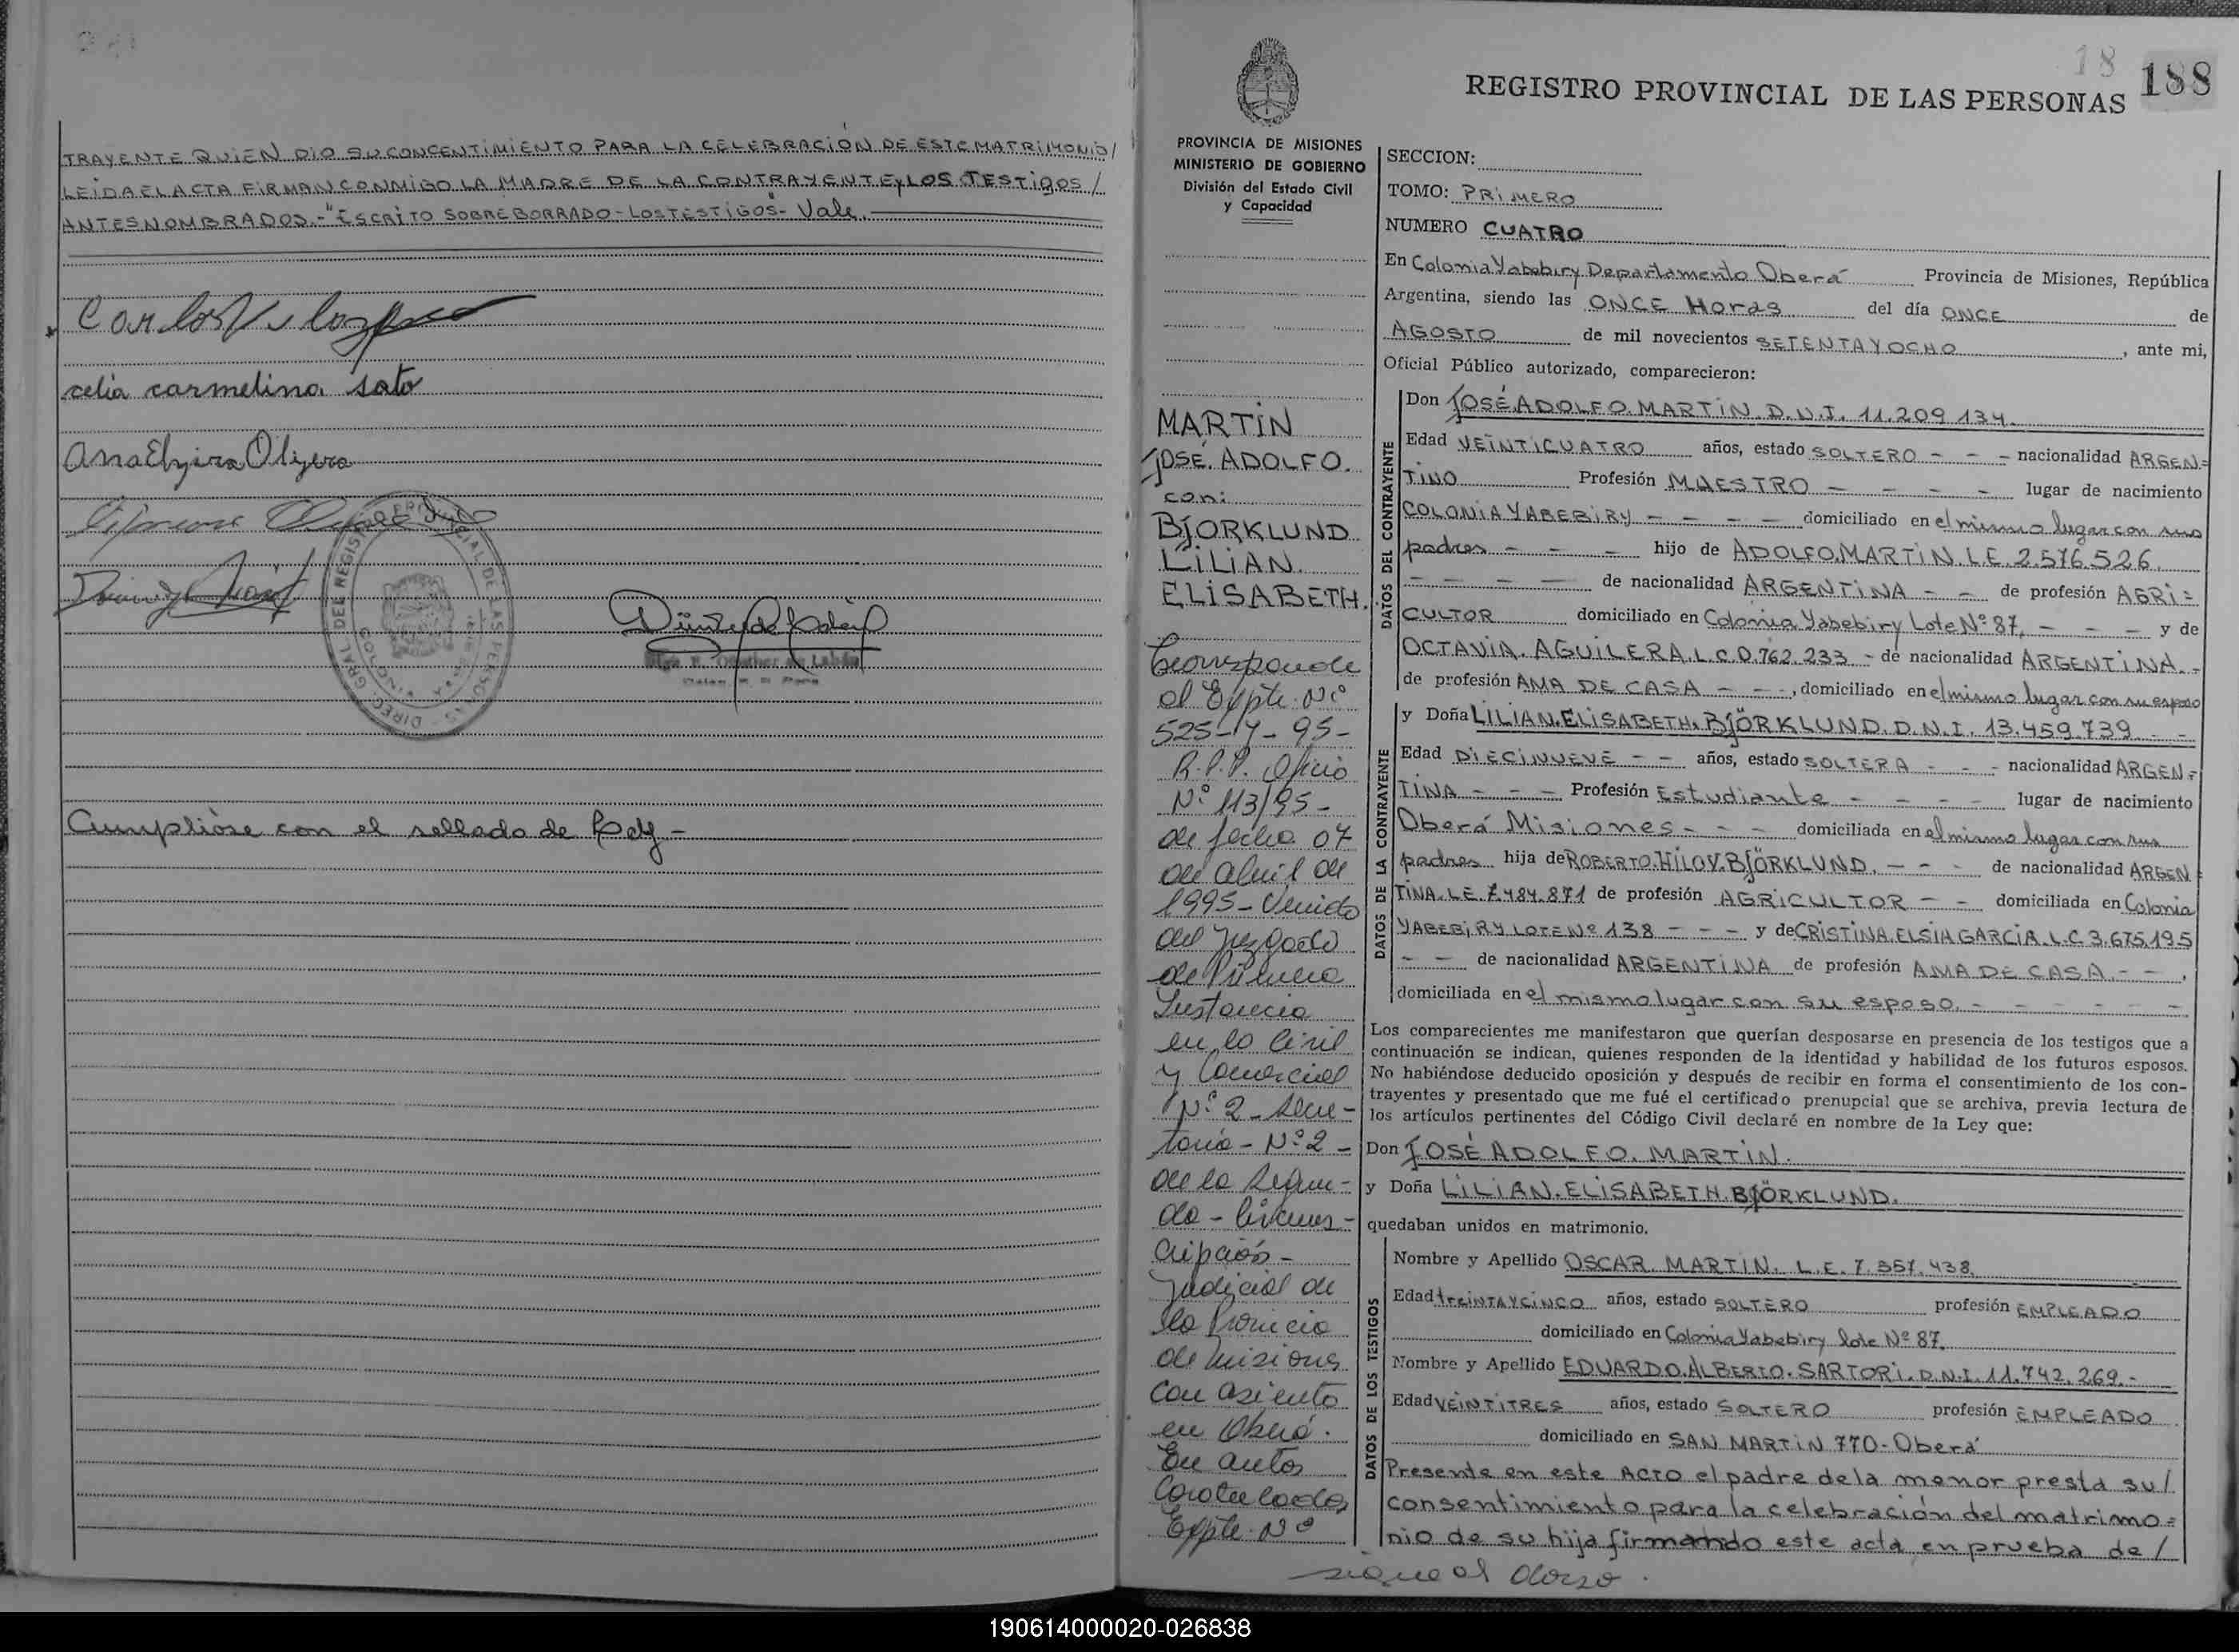 TRAYENTE QUIEN DIO SU CONCENTIMIENTO PARA LA CELEBRACIÓN DE ESTE MATRIMONIO/
LEIDA EL ACTA FIRMAN CONMIGO LA MADRE DE LA CONTRAYENTE y LOS TESTIGOS/
ANTES NOMBRADOS.-"ESCRITO SOBRE BORRADO-LOS TESTIGOS"- Vale.
celia carmelina soto
Ana Elvira Olivera
Cumplióse con el sellado de Ley -
18 188
REGISTRO PROVINCIAL DE LAS PERSONAS
PROVINCIA DE MISIONES
MINISTERIO DE GOBIERNO
División del Estado Civil
y Capacidad
MARTIN
JOSÉ. ADOLFO.
con:
BJORKLUND
LILIAN.
ELISABETH.
Corresponde
al Expte. Nº
525-Y-95-
R.P.P. Oficio
Nº 113/95-
de fecha 07
de abril de
1995- Venido
del Juzgado
de Primera
Instancia
en lo Civil
y Comercial
Nº 2 - Secre-
taria - Nº 2 -
de la Segun-
da - Circuns-
cripción -
Judicial de
la Provincia
de Misiones
con asiento
en Oberá.
En autos
Caratulados
Expte. Nº
SECCION:
TOMO: PRIMERO
NUMERO CUATRO
En Colonia Yabebiry Departamento Oberá Provincia de Misiones, República
Argentina, siendo las ONCE Horas del día ONCE de
AGOSTO de mil novecientos SETENTA Y OCHO, ante mi,
Oficial Público autorizado, comparecieron:
DATOS DEL CONTRAYENTE
Don JOSÉ ADOLFO MARTIN. D.N.I. 11.209.134.
Edad VEINTICUATRO años, estado SOLTERO - - - nacionalidad ARGEN=
TINO Profesión MAESTRO - - - - lugar de nacimiento
COLONIA YABEBIRY - - - - domiciliado en el mismo lugar con sus
padres - - - hijo de ADOLFO MARTIN L.E. 2.576.526.
- - - - de nacionalidad ARGENTINA - - de profesión AGRI=
CULTOR domiciliado en Colonia Yabebiry Lote Nº 87. - - - y de
OCTAVIA. AGUILERA. L.C. 0.762.233 - de nacionalidad ARGENTINA. -
de profesión AMA DE CASA - - -, domiciliado en el mismo lugar con su esposo
DATOS DE LA CONTRAYENTE
y Doña LILIAN. ELISABETH. BJÖRKLUND. D.N.I. 13.459.739 - -
Edad DIECINUEVE - - años, estado SOLTERA - - - nacionalidad ARGEN=
TINA - - - Profesión Estudiante - - - - lugar de nacimiento
Oberá Misiones - - - domiciliada en el mismo lugar con sus
padres hija de ROBERTO. HILOY. BJÖRKLUND. - - - de nacionalidad ARGEN=
TINA. L.E. 7.484.871 de profesión AGRICULTOR - - domiciliada en Colonia
YABEBIRY LOTE Nº 138 - - - y de CRISTINA. ELSIA GARCIA. L.C. 3.675.195
- - de nacionalidad ARGENTINA de profesión AMA DE CASA. - -,
domiciliada en el mismo lugar con su esposo. - - - - - -
Los comparecientes me manifestaron que querían desposarse en presencia de los testigos que a
continuación se indican, quienes responden de la identidad y habilidad de los futuros esposos.
No habiéndose deducido oposición y después de recibir en forma el consentimiento de los con-
trayentes y presentado que me fué el certificado prenupcial que se archiva, previa lectura de
los artículos pertinentes del Código Civil declaré en nombre de la Ley que:
Don JOSÉ ADOLFO. MARTIN.
y Doña LILIAN. ELISABETH. BJÖRKLUND.
quedaban unidos en matrimonio.
DATOS DE LOS TESTIGOS
Nombre y Apellido OSCAR. MARTIN. L.E. 7.357.438.
Edad treinta y cinco años, estado SOLTERO profesión EMPLEADO
domiciliado en Colonia Yabebiry lote Nº 87.
Nombre y Apellido EDUARDO. ALBERTO. SARTORI. D.N.I. 11.742.269.-
Edad VEINTITRES años, estado SOLTERO profesión EMPLEADO
domiciliado en SAN MARTIN 770 - Oberá
Presente en este ACTO el padre de la menor presta su/
consentimiento para la celebración del matrimo=
nio de su hija firmando este acta en prueba de/
sigue al dorso.
190614000020-026838